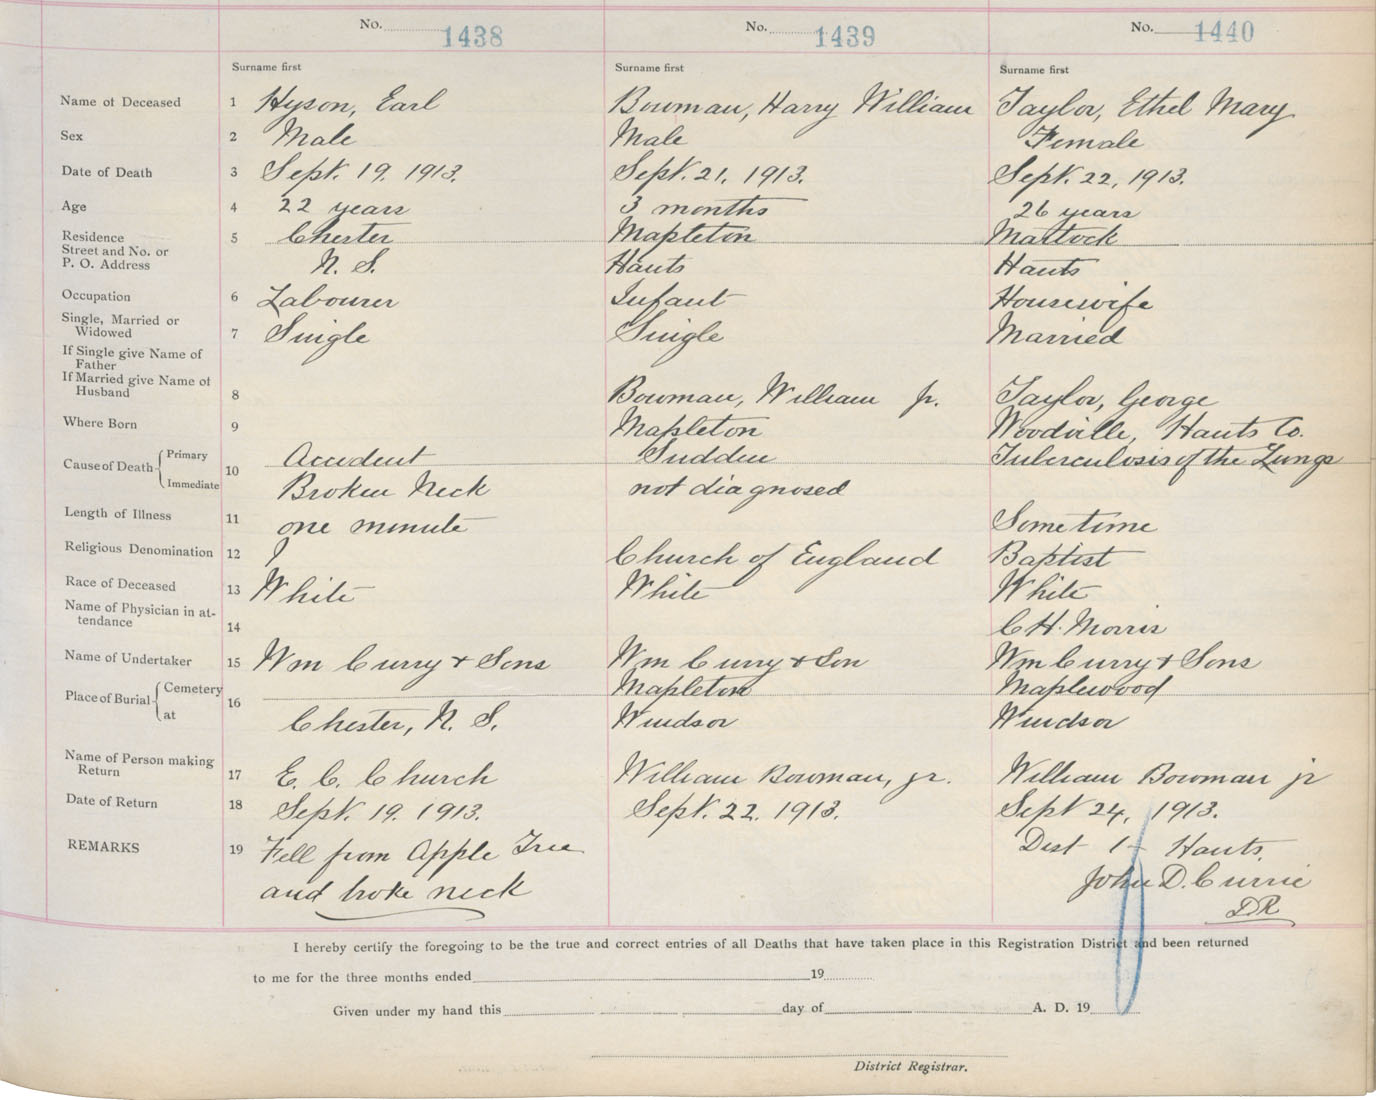 No. 1438 No. 1439 No. 1440
Surname first Surname first Surname first
Name of Deceased 1 Hyson, Earl Bowman, Harry William Taylor, Ethel Mary
Sex 2 Male Male Female
Date of Death 3 Sept. 19. 1913. Sept. 21, 1913. Sept. 22, 1913.
Age 4 22 years 3 months 26 years
Residence 5 Chester Mapleton Martock
Street and No. or
P. O. Address N. S. Hants Hants
Occupation 6 Labourer Infant Housewife
Single, Married or
Widowed 7 Single Single Married
If Single give Name of
Father
If Married give Name of
Husband 8 Bowman, William Jr. Taylor, George
Where Born 9 Mapleton Woodville, Hants Co.
Cause of Death Primary 10 Accident Sudden Tuberculosis of the Lungs
Immediate Broken Neck not diagnosed
Length of Illness 11 one minute Some time
Religious Denomination 12 ? Church of England Baptist
Race of Deceased 13 White White White
Name of Physician in at-
tendance 14 C H. Morris
Name of Undertaker 15 Wm Curry & Sons Wm Curry & Son Wm Curry & Sons
Place of Burial Cemetery 16 Mapleton Maplewood
at Chester, N. S. Windsor Windsor
Name of Person making
Return 17 E. C. Church William Bowman, jr. William Bowman jr
Date of Return 18 Sept. 19. 1913. Sept. 22. 1913. Sept 24, 1913.
REMARKS 19 Fell from Apple Tree Dist 1 - Hants.
and broke neck John D. Currie
DR
I hereby certify the foregoing to be the true and correct entries of all Deaths that have taken place in this Registration District and been returned
to me for the three months ended 19
Given under my hand this day of A. D. 19
District Registrar.